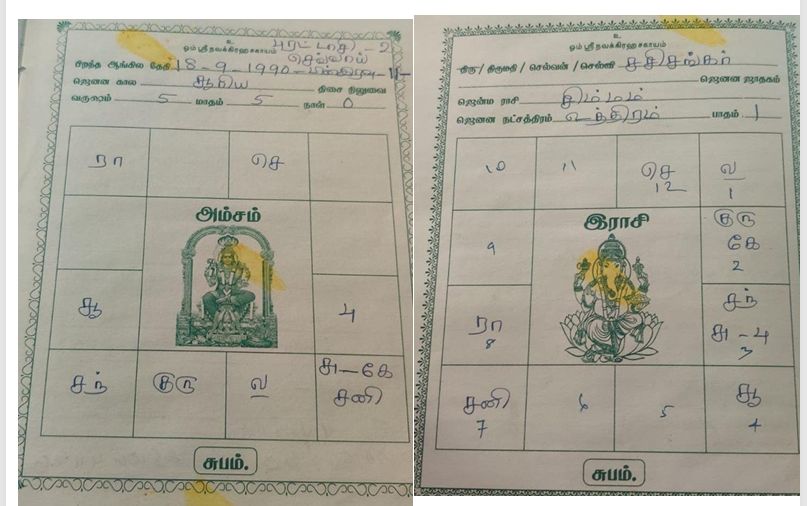 உ
ஓம் ஸ்ரீ நவக்கிரஹ சகாயம்
புரட்டாசி - 2
செவ்வாய்
பிறந்த ஆங்கில தேதி 18-9-1990
ஜெனன கால சூரிய திசை நிலுவை
வருஷம் 5 மாதம் 5 நாள் 0
ரா செ
அம்சம்
சூ 4
சந் குரு ல சு-கே
சனி
சுபம்.
உ
ஓம் ஸ்ரீ நவக்கிரஹ சகாயம்
திரு / திருமதி / செல்வன் / செல்வி சசிசங்கர்
ஜெனன ஜாதகம்
ஜென்ம ராசி சிம்மம்
ஜெனன நட்சத்திரம் உத்திரம் பாதம் 1
10 11 செ ல
12 1
இராசி
9 குரு
கே
2
ரா சந்
8 சு-பு
3
சனி 6 5 சூ
7 4
சுபம்.